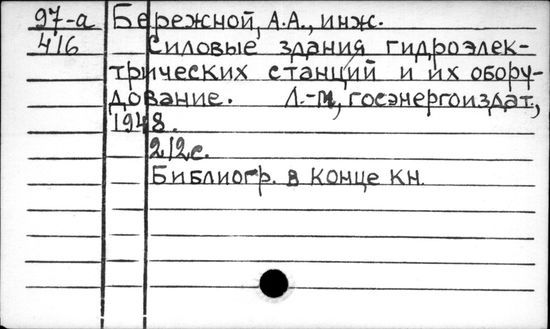 97-а Бережной, А.А., инж.
416 Силовые здания гидроэлек-
трических станций и их обору-
дование. Л.-М, госэнергоиздат,
1948.
212с.
Библиогр. в конце кн.